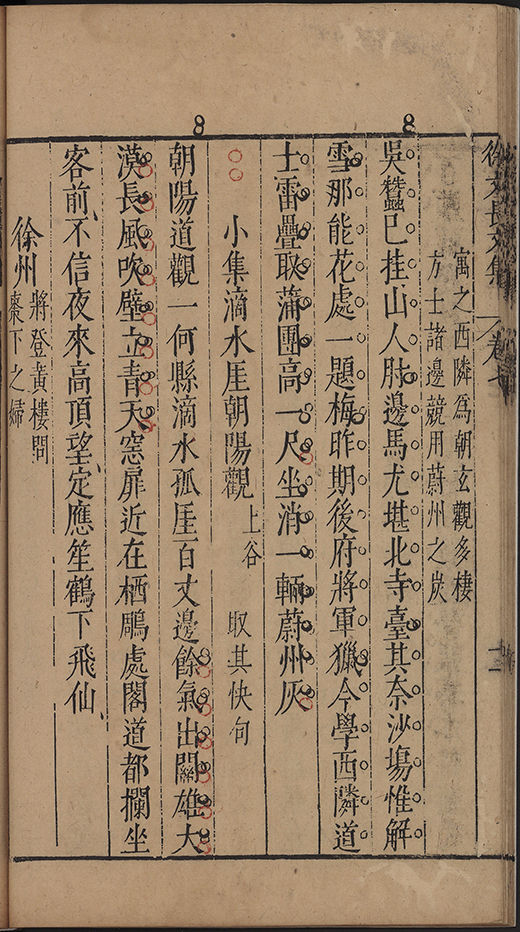 徐文長文集 卷七 十二
寓之西隣爲朝玄觀多棲
方士諸邊競用蔚州之炭
吳蠶已挂山人肘邊馬尤堪北寺臺其奈沙塲惟解
雪那能花處一題梅昨期後府將軍獵今學西隣道
士雷疊取蒲團高一尺坐消一輛蔚州灰
小集滴水厓朝陽觀 上谷 取其快句
朝陽道觀一何縣滴水孤厓百丈邊餘氣出關雄大
漠長風吹壁立青天窓扉近在栖鵰處閣道都攔坐
客前不信夜來高頂望定應笙鶴下飛仙
徐州 將登黃樓問
棗下之婦